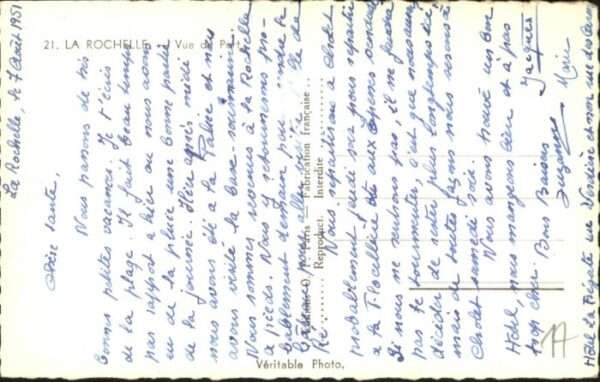 La Rochelle, le 7 Août 1951
21. LA ROCHELLE. - Vue du Port
Chère tante,
Nous passons de très
bonnes petites vacances. Je t'écris
de la plage. Il fait beau temps
par rapport à hier où nous avons
eu de la pluie une bonne partie
de la journée. Hier après-midi
nous avons été à la Palice et nous
avons visité la base sous-marine.
Nous sommes revenus à la Rochelle
à pieds. Nous y retournerons pro-
bablement demain pour prendre le
bateau pour aller à l'île de
Ré. Nous repartirons à Cholet
probablement jeudi soir pour repartir
à la Flocellière
Si nous ne rentrons pas, il ne faudra
pas te tourmenter, c'est que nous aurons
décidé de rester plus longtemps ici,
mais de toutes façons nous serons à
Cholet samedi soir.
Nous avons trouvé un bon
Hôtel, nous mangeons bien et à pas
trop cher. Bons Baisers
Jacques
Suzanne Marie
Hôtel de
Éditions
Paris - Fabrication française
Reproduct. Interdite
Véritable Photo.